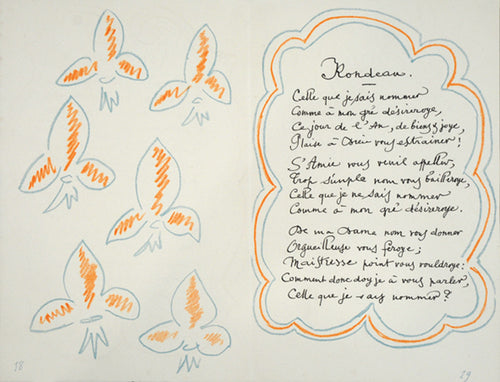 Rondeau.
Celle que je sais nommer
Comme à mon gré désireroye,
Ce jour de l'An, de biens & joye,
Plaise à Dieu vous estrainer!
S'Amie vous veuil appeller,
Trop simple nom vous bailleroye,
Celle que je ne sais nommer
Comme à mon gré désireroye.
De ma Dame nom vous donner
Orgueilleuse vous feroye;
Maistresse point vous vouldroye:
Comment donc doy je à vous parler,
Celle que je sais nommer?
58
59